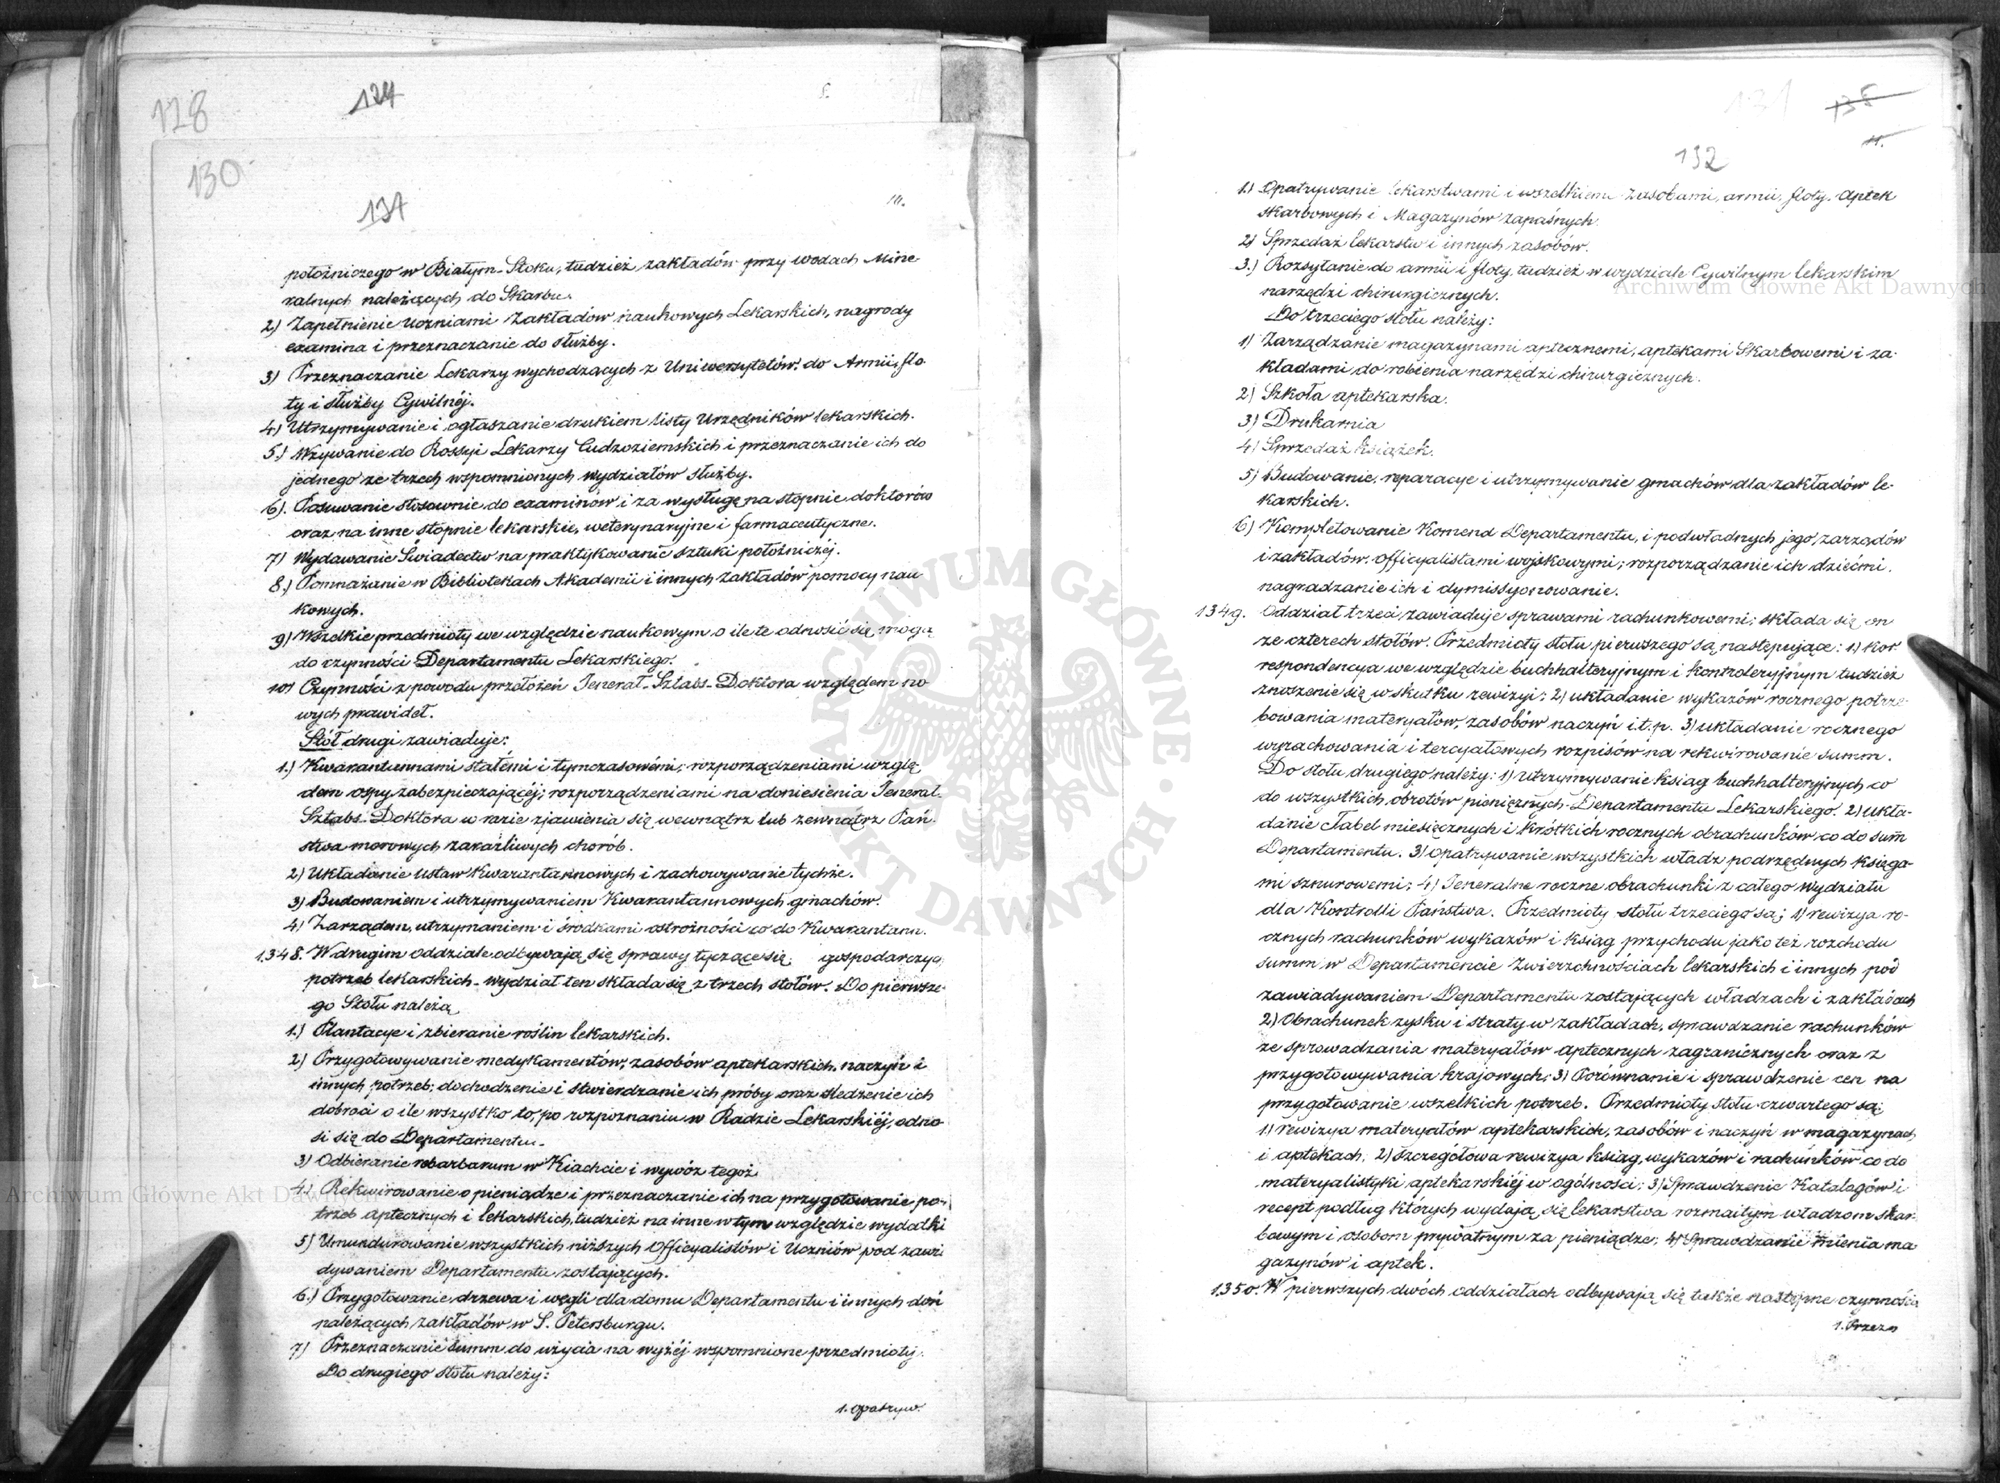 128
124
8.
130
131
10.
położniczego w Białym-Stoku, tudzież zakładów przy wodach Mine
ralnych należących do Skarbu.
2) Zapełnienie Uczniami Zakładów naukowych Lekarskich, nagrody
examina i przeznaczanie do służby.
3) Przeznaczanie Lekarzy wychodzących z Uniwersytetów do Armii, flo
ty i służby Cywilnéj.
4) Utrzymywanie i ogłaszanie drukiem listy Urzędników lekarskich.
5.) Wzywanie do Rossyi Lekarzy Cudzoziemskich i przeznaczanie ich do
jednego ze trzech wspomnionych wydziałów służby.
6). Posuwanie stosownie do examinów i za wysługę na stopnie doktorów
oraz na inne stopnie lekarskie, weterynaryjne i farmaceutyczne.
7) Wydawanie Świadectw na praktykowanie sztuki położniczéj.
8.) Pomnażanie w Bibliotekach Akademii i innych zakładów pomocy nau
kowych.
9) Wszelkie przedmioty we względzie naukowym o ile te odnosić się mogą
do czynności Departamentu Lekarskiego.
10) Czynności z powodu przełożeń Jenerał-Sztabs-Doktora względem no
wych prawideł.
Stół drugi zawiaduje:
1.) Kwarantannami stałémi i tymczasowémi, rozporządzeniami wzglę
dem ospy zabezpieczającéj; rozporządzeniami na doniesienia Jenerał-
Sztabs-Doktora w razie zjawienia się wewnątrz lub zewnątrz Pań-
stwa morowych zaraźliwych chorób.
2) Układanie ustaw Kwarantannowych i zachowywanie tychże.
3) Budowaniem i utrzymywaniem Kwarantannowych gmachów.
4) Zarządem, utrzymaniem i środkami ostrożności co do Kwarantann.
1348. W drugim oddziale odbywają się sprawy tyczące się gospodarczych
potrzeb lekarskich - wydział ten składa się z trzech stołów. Do pierwsze-
go Stołu należą
1.) Plantacye i zbieranie roślin lekarskich.
2) Przygotowywanie medykamentów, zasobów aptekarskich, naczyń i
innych potrzeb; dochodzenie i stwierdzanie ich próby oraz śledzenie ich
dobroci o ile wszystko to, po rozpoznaniu w Radzie Lekarskiéj, odno
si się do Departamentu.
3) Odbieranie rebarbarum w Kiachcie i wywóz tegoż
4.) Rekwirowanie o pieniądze i przeznaczanie ich na przygotowanie po-
trzeb aptecznych i lekarskich, tudzież na inne w tym względzie wydatki
5) Umundurowanie wszystkich niższych Officyalistów i Uczniów pod zawi
dywaniem Departamentu zostających.
6.) Przygotowanie drzewa i węgli dla domu Departamentu i innych doń
należących zakładów w S. Petersburgu.
7) Przeznaczanie summ do użycia na wyżéj wspomnione przedmioty.
Do drugiego stołu należy:
1. Opatryw.
131
135
11.
132
1.) Opatrywanie lekarstwami i wszelkiemi zasobami, armii, floty, Aptek
skarbowych i Magazynów zapaśnych.
2) Sprzedaż lekarstw i innych zasobów.
3.) Rozsyłanie do armii i floty, tudzież w wydziale Cywilnym lekarskim
narzędzi chirurgicznych.
Do trzeciego stołu należy:
1) Zarządzanie magazynami aptecznemi, aptekami Skarbowemi i za-
kładami do robienia narzędzi chirurgicznych.
2) Szkoła aptekarska.
3) Drukarnia
4) Sprzedaż książek.
5) Budowanie, reparacye i utrzymywanie gmachów dla zakładów le-
karskich.
6) Kompletowanie Komend Departamentu, i podwładnych jego zarządów
i zakładów Officyalistami wojskowymi; rozporządzanie ich dziećmi,
nagradzanie ich i dymissyonowanie.
1349. Oddział trzeci zawiaduje sprawami rachunkowemi; składa się on
ze czterech stołów. Przedmioty stołu pierwszego są następujące: 1) Kor
respondencya we względzie buchhalteryjnym i kontroleryjnym tudzież
znoszenie się w skutku rewizyi; 2) układanie wykazów rocznego potrze-
bowania materyałów, zasobów naczyń i.t.p. 3) układanie rocznego
wyrachowania i tercyałowych rozpisów na rekwirowanie summ.
Do stołu drugiego należy: 1) utrzymywanie ksiąg buchhalteryjnych co
do wszystkich obrotów pieniężnych Departamentu Lekarskiego. 2) ukła-
danie Tabel miesięcznych i krótkich rocznych obrachunków co do sum̄
Departamentu. 3) opatrywanie wszystkich władz podrzędnych księga-
mi sznurowemi; 4) Jeneralne roczne obrachunki z całego Wydziału
dla Kontrolli Państwa. Przedmioty stołu trzeciego są; 1) rewizya ro-
cznych rachunków wykazów i ksiąg przychodu jako też rozchodu
summ w Departamencie Zwierzchnościach lekarskich i innych pod
zawiadywaniem Departamentu zostających władzach i zakładach
2) Obrachunek zysku i straty w zakładach, sprawdzanie rachunków
ze sprowadzania materyałów aptecznych zagranicznych oraz z
przygotowywania krajowych; 3) Porównanie i sprawdzenie cen na
przygotowanie wszelkich potrzeb. Przedmioty stołu czwartego są;
1) rewizya materyałów aptekarskich, zasobów i naczyń w magazynach
i aptekach; 2) szczegółowa rewizya ksiąg, wykazów i rachunków co do
materyalistyki aptékarskiéj w ogólności; 3) Sprawdzenie Katalogów i
recept podług których wydają się lekarstwa rozmaitym władzom skar-
bowym i osobom prywatnym za pieniądze; 4) Sprawdzanie mienia ma
gazynów i aptek.
1350. W pierwszych dwóch oddziałach odbywają się także następne czynności
1. Przezn
Archiwum Główne Akt Dawnych
Archiwum Główne Akt Dawnych
ARCHIWUM GŁÓWNE AKT DAWNYCH